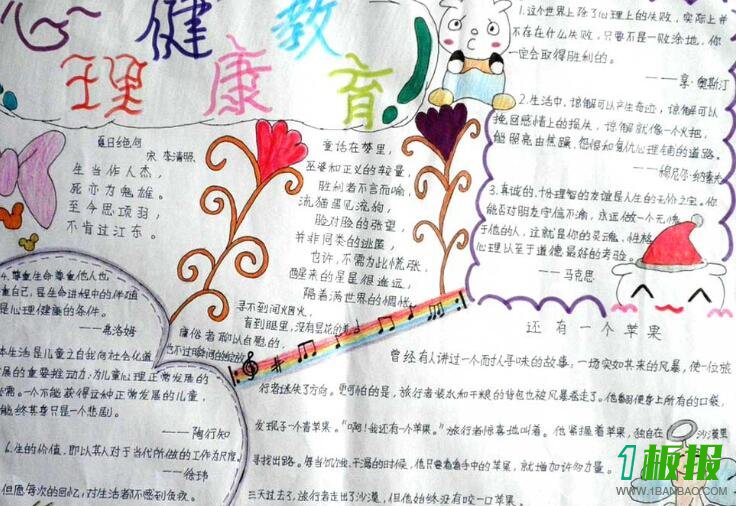 心理健康教育
夏日绝句
宋 李清照
生当作人杰，
死亦为鬼雄。
至今思项羽，
不肯过江东。
童话在梦里，
巫婆和正义的较量，
胜利者不言而喻，
流猫遇见流狗，
脸对脸的张望，
并非同类的逃匿，
也许，不需为此慌张，
醒来的星星很遥远，
隔着满世界的惆怅
寻不到间烟火，
盲到眼里，没有昙花的美
庸俗者聊以自慰的，
也不过瞬间的
1.这个世界上除了心理上的失败，实际上并
不存在什么失败，只要不是一败涂地，你
一定会取得胜利的。
——亨·奥斯汀
2.生活中，谅解可以产生奇迹，谅解可以
挽回感情上的损失，谅解就像一个火把，
能照亮由焦躁、怨恨和复仇心理铺的道路。
——穆尼尔·纳素夫
3.真诚的、十分理智的友谊是人生的无价之宝。你
能否对朋友守信不渝，永远做一个无愧
于他的人，这就是你的灵魂、性格、
心理以至于道德最好的考验。
——马克思
4.尊重生命、尊重他人也
重自己，是生命进程中的伴随
是心理健康的条件。
——弗洛姆
本生活是儿童之自我向社会化道
展的重要推动力；为儿童心理正常发展的
必需。一个不能获得这种正常发展的儿童，
能终其身只是一个悲剧。
——陶行知
6.生的价值，即以其人对于当代所做的工作为尺度。
——徐玮
但愿每次的回忆，对生活者不感到负疚。
还有一个苹果
曾经有人讲过一个耐人寻味的故事：一场突如其来的风暴，使一位旅
行者迷失了方向。更可怕的是，旅行者装水和干粮的背包也被风暴卷走了。他翻便身上所有的口袋，
发现了一个青苹果。“啊！我还有一个苹果。”旅行者惊喜地叫着。他紧握着苹果，独自在沙漠里
寻找出路。每当饥饿、干渴的时候，他只要看看手中的苹果，就增加许多力量。
三天过去了，旅行者走出了沙漠，但他始终没有咬一口苹果。
1板报
WWW.1BANBAO.COM